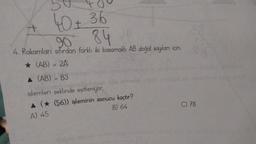 40+ 36
90 84
4. Rakamları sıfırdan farklı iki basamaklı AB doğal sayıları için
★ (AB) = 2A
▲ (AB) = B3
işlemleri şeklinde veriliyor.
▲ (★ (56)) işleminin sonucu kaçtır?
A) 45
B) 64
C) 78